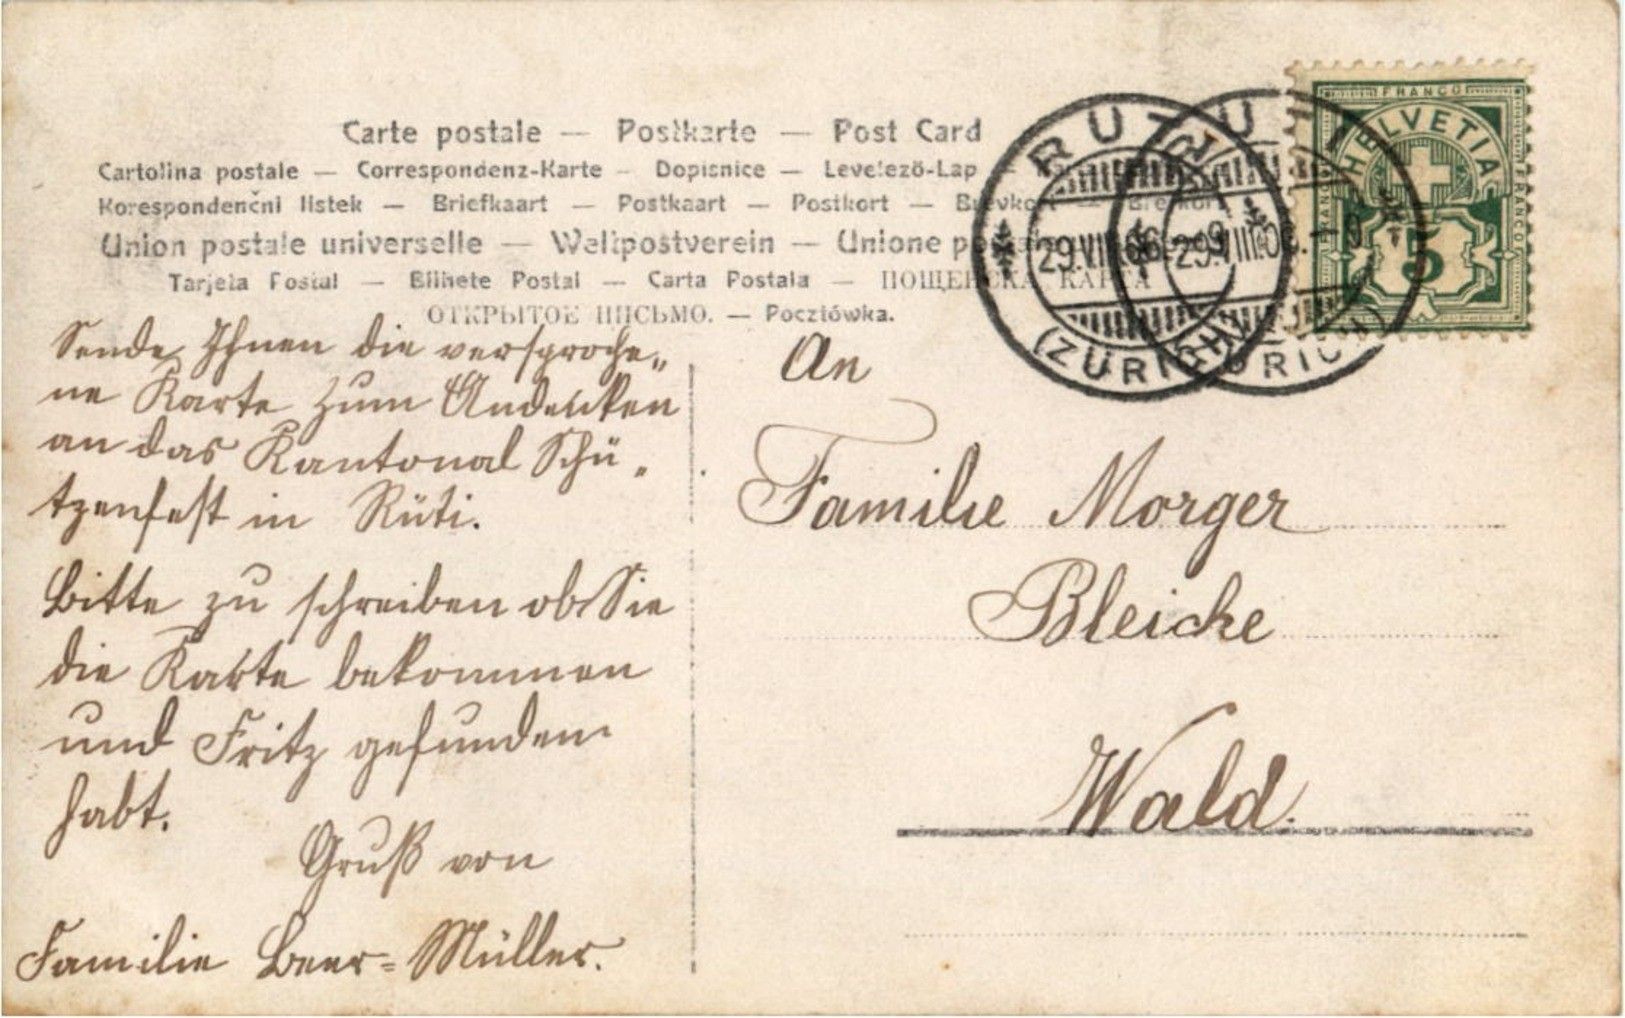 Carte postale — Postkarte — Post Card
Cartolina postale — Correspondenz-Karte — Dopisnice — Levelező-Lap
Korespondenční listek — Briefkaart — Postkaart — Postkort — Brevkort — Brefkort
Union postale universelle — Weltpostverein — Unione postale
Tarjeta Postal — Bilhete Postal — Carta Postala — ПОЩЕНСКА КАРТА
ОТКРЫТОЕ ПИСЬМО. — Pocztówka.
RUTI
29.VIII.06. - 9
(ZÜRICH)
RUTI
29.VIII.06. - 9
(ZÜRICH)
FRANCO
HELVETIA
FRANCO
FRANCO
5
Sende Ihnen die versproche„
ne Karte zum Andenken
an das Kantonal Schü„
tzenfest in Rüti.
Bitte zu schreiben ob Sie
die Karte bekommen
und Fritz gefunden
habt.
Gruß von
Familie Beer=Müller.
An
Familie Morger
Bleiche
Wald.